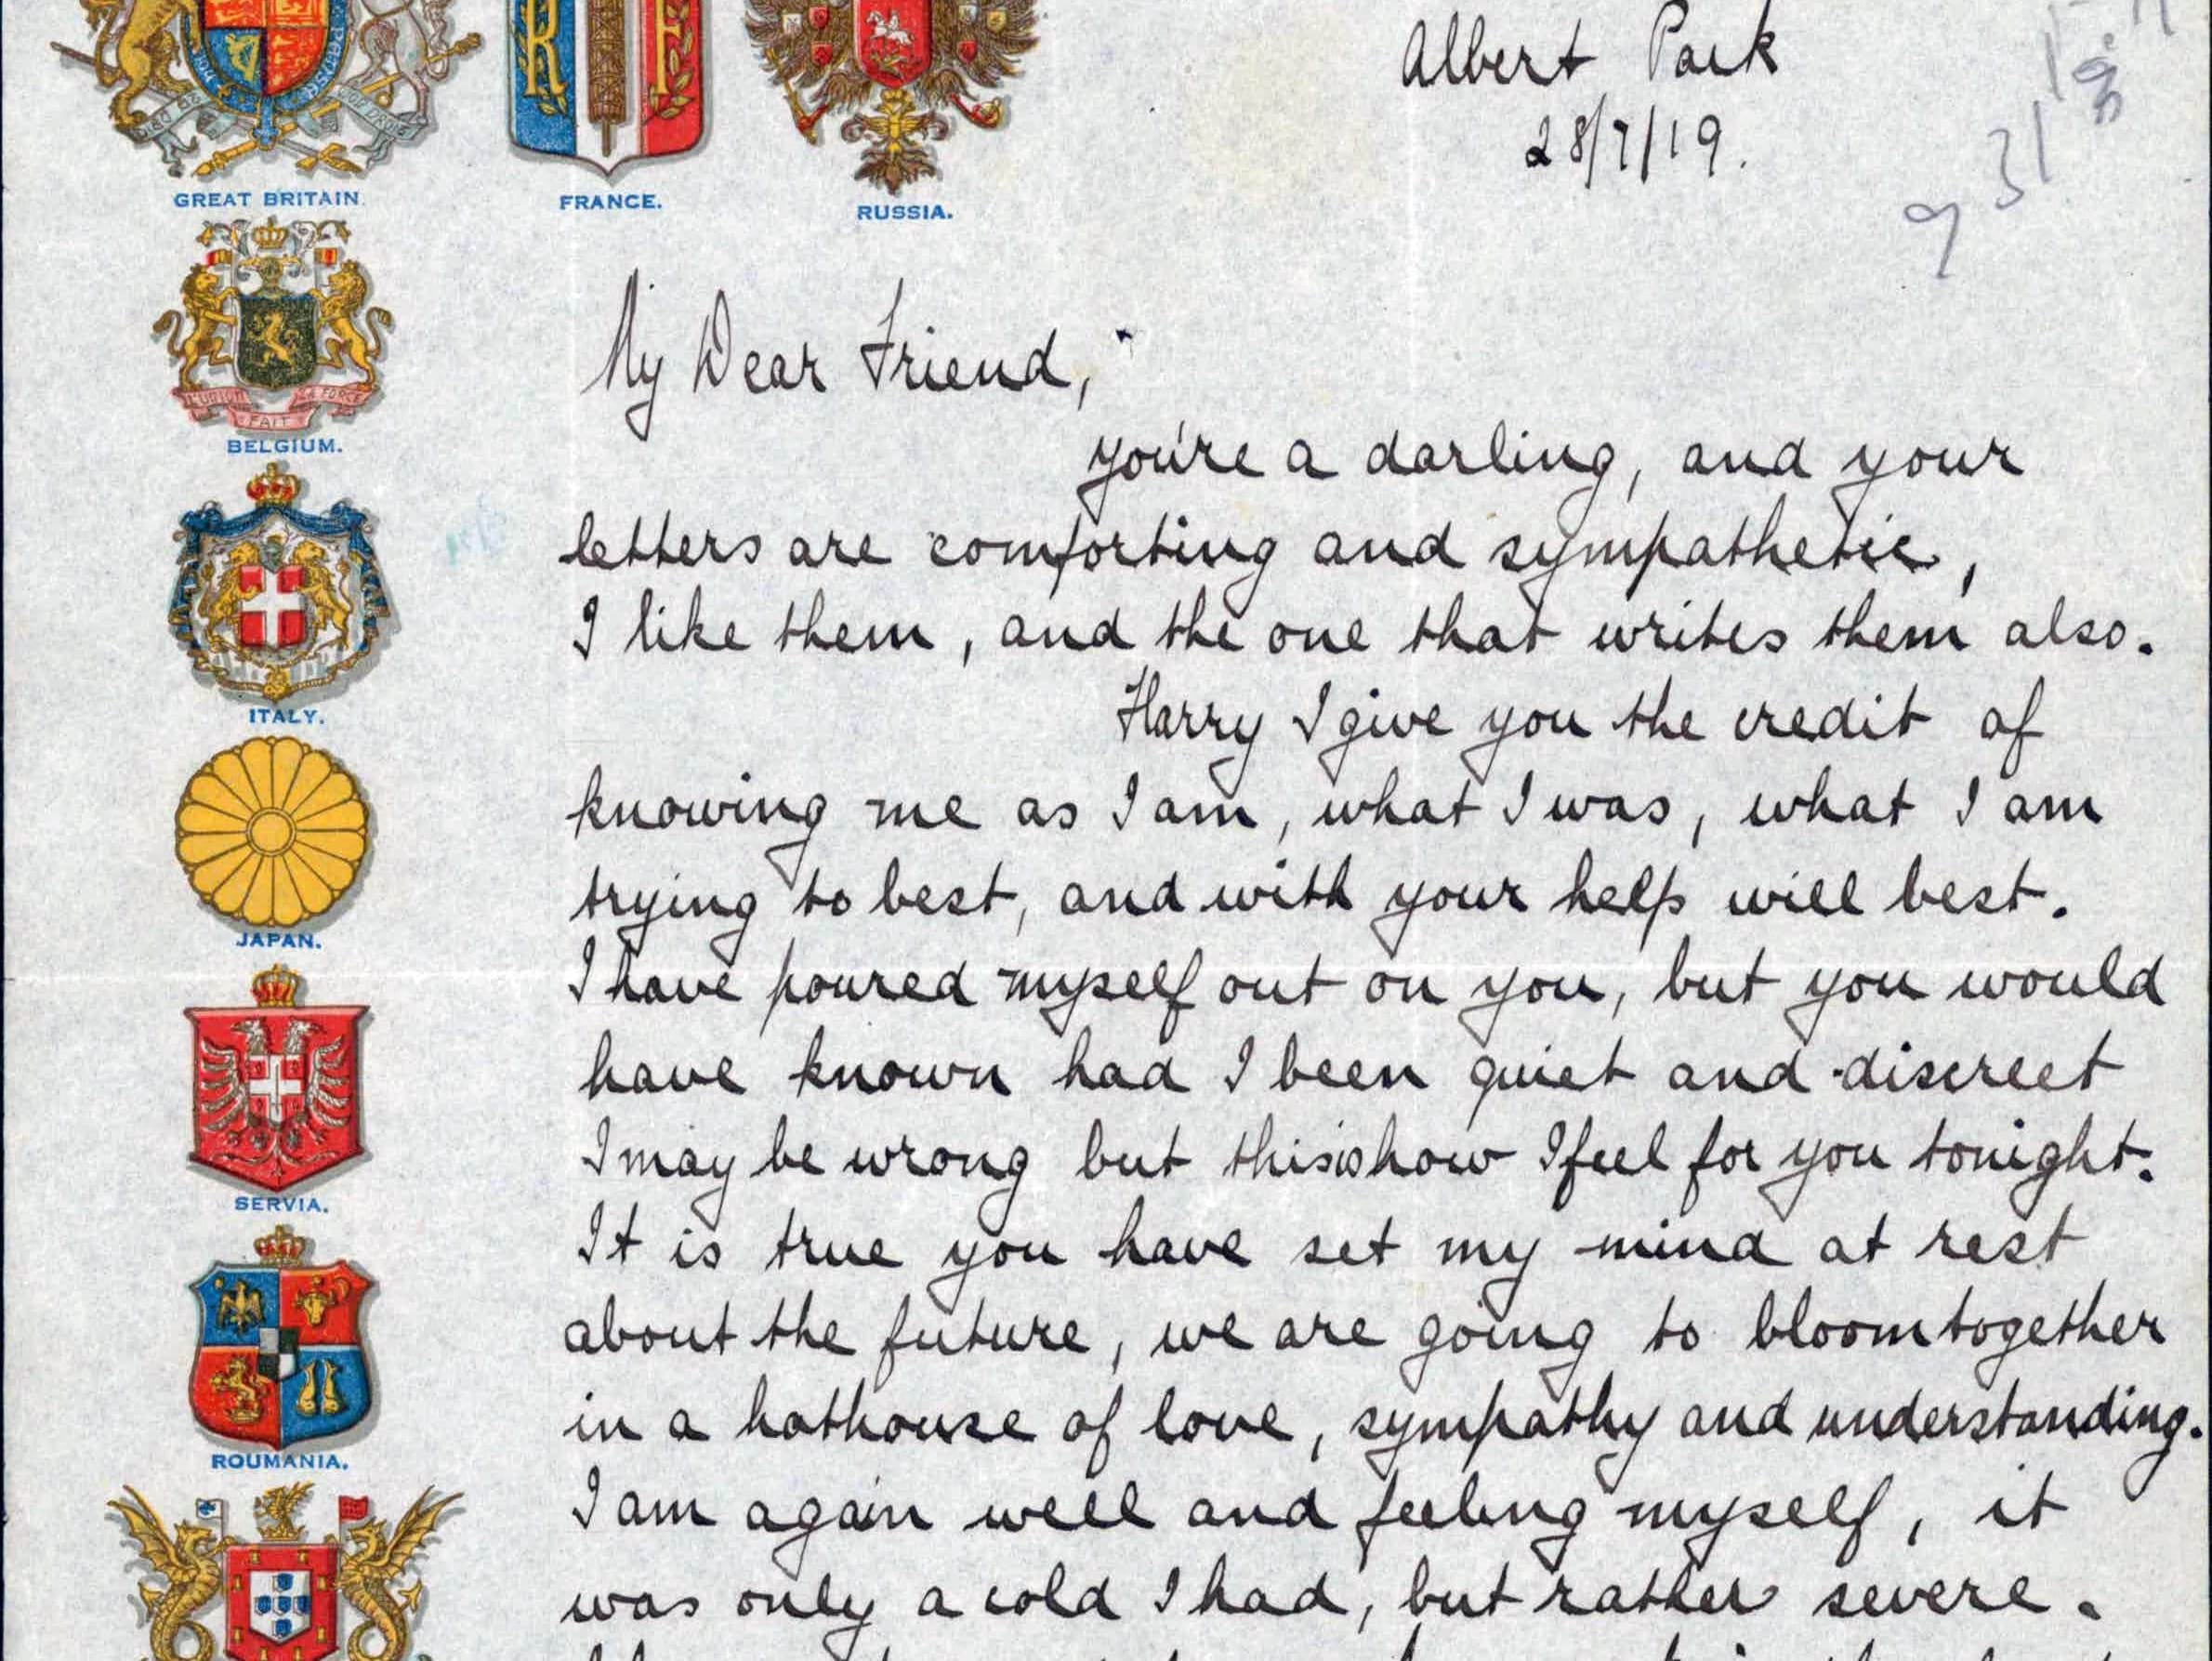 Albert Park
28/7/19.
9 31
GREAT BRITAIN.
FRANCE.
RUSSIA.
DIEU ET MON DROIT
R F
L'UNION FAIT LA FORCE
BELGIUM.
ITALY.
JAPAN.
SERVIA.
ROUMANIA.
My Dear Friend,
you're a darling, and your
letters are comforting and sympathetic,
I like them, and the one that writes them also.
Harry I give you the credit of
knowing me as I am, what I was, what I am
trying to best, and with your help will best.
I have poured myself out on you, but you would
have known had I been quiet and discreet
I may be wrong but this is how I feel for you tonight.
It is true you have set my mind at rest
about the future, we are going to bloom together
in a hothouse of love, sympathy and understanding.
I am again well and feeling myself, it
was only a cold I had, but rather severe.